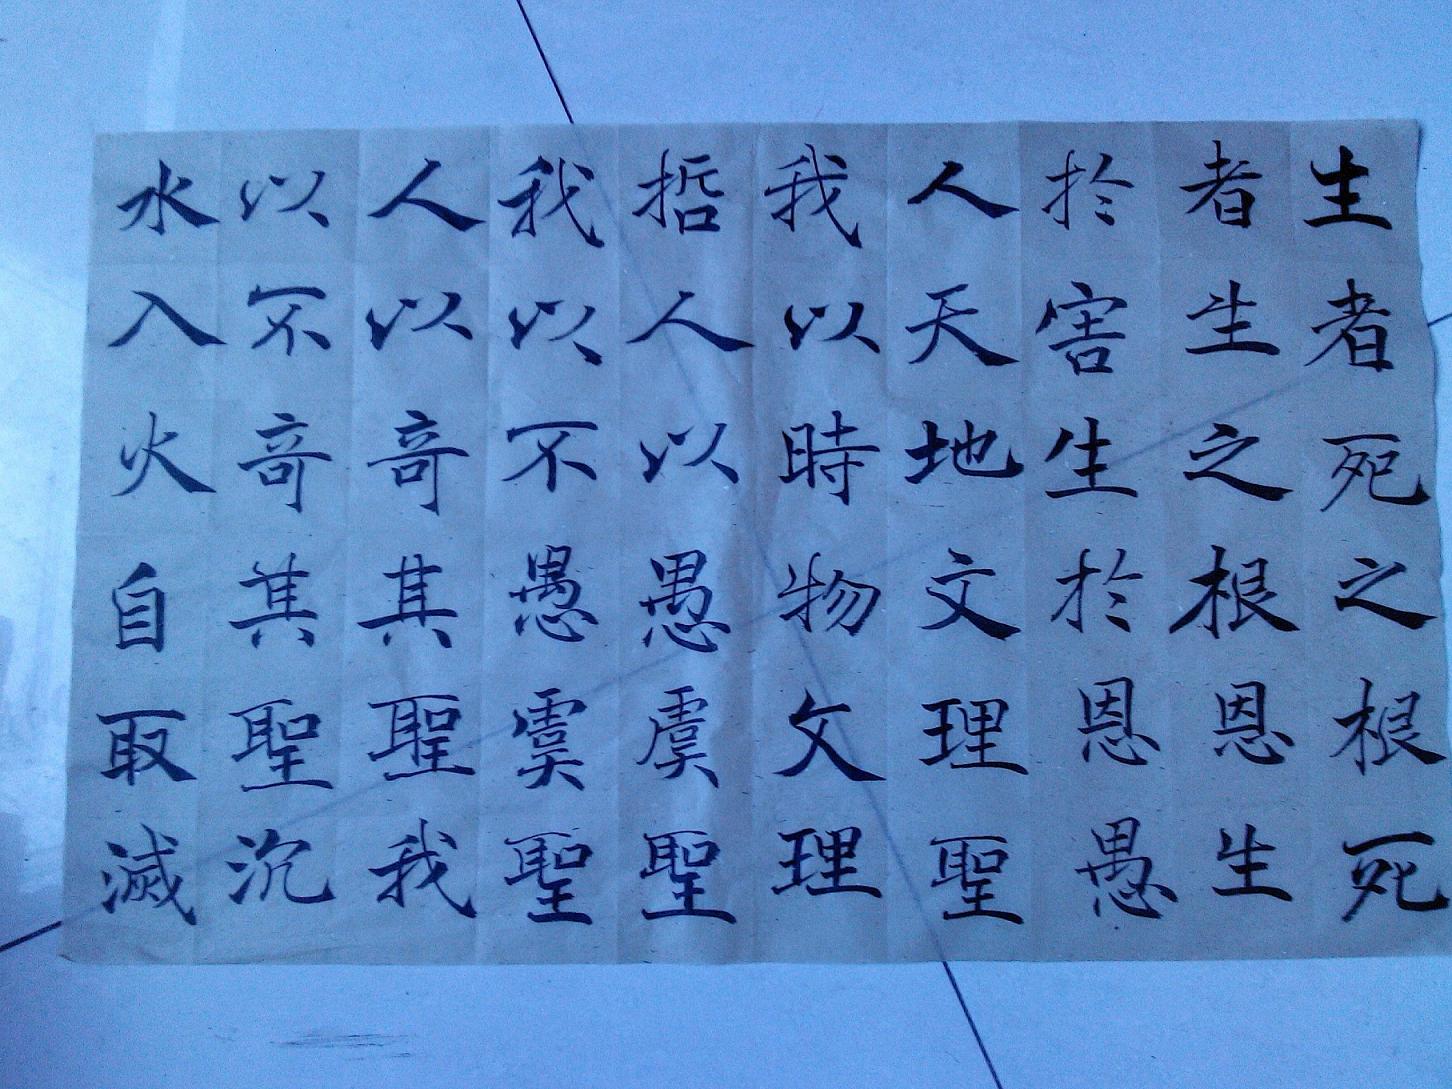 生者死之根死
者生之根恩生
於害生於恩愚
人天地文理聖
我以時物文理
哲人以愚虞聖
我以不愚虞聖
人以奇其聖我
以不奇其聖沉
水入火自取滅